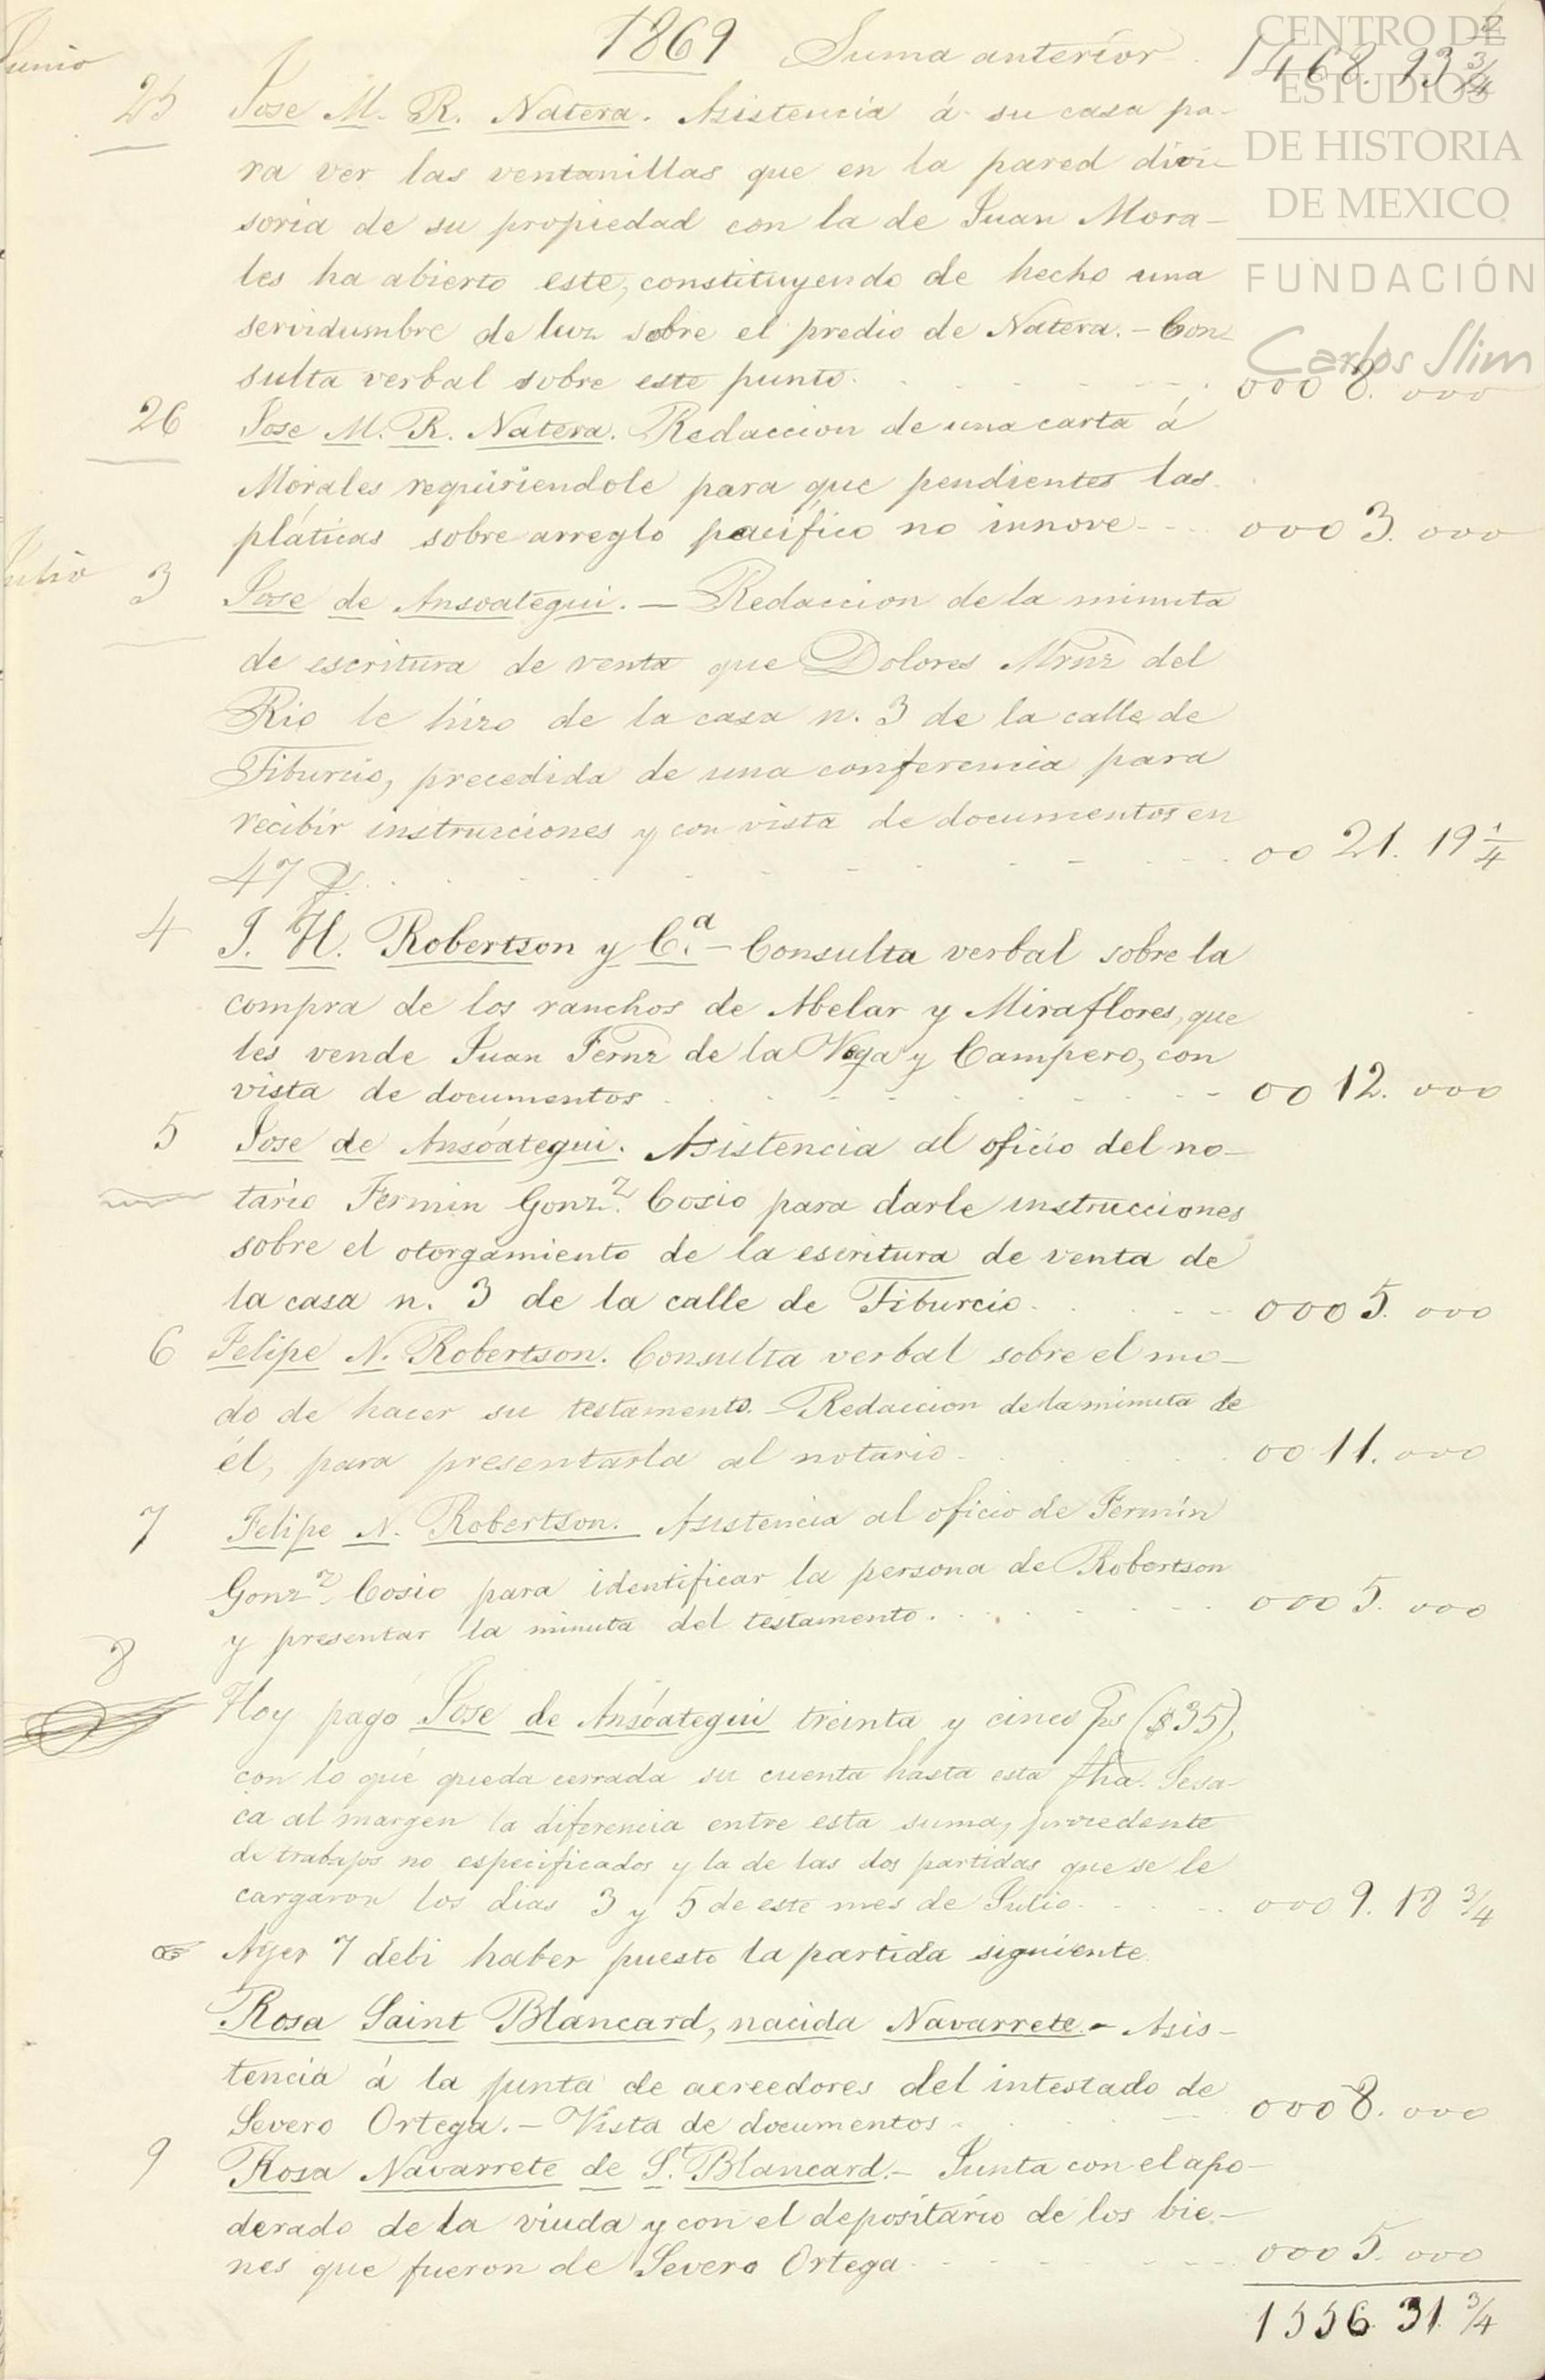 1869 Suma anterior 1468. 93 3/4
Junio
25 Jose M. R. Natera. Asistencia á su casa pa-
ra ver las ventanillas que en la pared divi-
soria de su propiedad con la de Juan Mora-
les ha abierto este, constituyendo de hecho una
servidumbre de luz sobre el predio de Natera. - Con-
sulta verbal sobre este punto. 000 8. 000
26 Jose M. R. Natera. Redaccion de una carta á
Morales requiriendole para que pendientes las
pláticas sobre arreglo pacífico no innove 000 3. 000
Julio 3 Jose de Ansoategui. — Redaccion de la minuta
de escritura de venta que Dolores Mrnz del
Rio le hizo de la casa n. 3 de la calle de
Tiburcio, precedida de una conferencia para
recibir instrucciones y con vista de documentos en
47 00 21. 19 1/4
4 J. H. Robertson y C.ª - Consulta verbal sobre la
compra de los ranchos de Abelar y Miraflores, que
les vende Juan Fernz de la Vega y Campero, con
vista de documentos 00 12. 000
5 Jose de Ansóategui. Asistencia al oficio del no-
tario Fermin Gonz.z Cosio para darle instrucciones
sobre el otorgamiento de la escritura de venta de
la casa n. 3 de la calle de Tiburcio. 000 5. 000
6 Felipe N. Robertson. Consulta verbal sobre el mo-
do de hacer su testamento. - Redaccion de la minuta de
él, para presentarla al notario. 00 11. 000
7 Felipe N. Robertson. Asistencia al oficio de Fermin
Gonz.z Cosio para identificar la persona de Robertson
y presentar la minuta del testamento. 000 5. 000
8
Hoy pagó Jose de Ansóategui treinta y cinco ps ($35),
con lo que queda cerrada su cuenta hasta esta fha. Se sa-
ca al margen la diferencia entre esta suma, procedente
de trabajos no especificados y la de las dos partidas que se le
cargaron los dias 3 y 5 de este mes de Julio. 000 9. 18 3/4
☞ Ayer 7 debi haber puesto la partida siguiente.
Rosa Saint Blancard, nacida Navarrete. - Asis-
tencia á la junta de acreedores del intestado de
Severo Ortega. - Vista de documentos 000 8. 000
9 Rosa Navarrete de St. Blancard. - Junta con el apo-
derado de la viuda y con el depositario de los bie-
nes que fueron de Severo Ortega 000 5. 000
1556 31 3/4
CENTRO DE
ESTUDIOS
DE HISTORIA
DE MEXICO
FUNDACIÓN
Carlos Slim